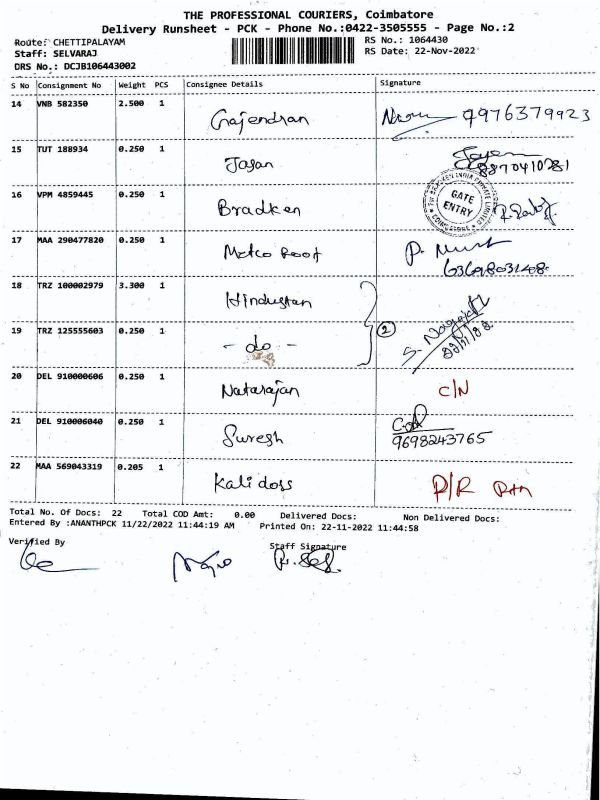 THE PROFESSIONAL COURIERS, Coimbatore
Delivery Runsheet - PCK - Phone No.:0422-3505555 - Page No.:2
Route: CHETTIPALAYAM
RS No.: 1064430
Staff: SELVARAJ
RS Date: 22-Nov-2022
DRS No.: DCJB106443002
S No Consignment No Weight PCS Consignee Details Signature
14 VNB 582350 2.500 1 Gajendran 9976379923
15 TUT 188934 0.250 1 Jasan 8870410781
16 VPM 4859445 0.250 1 Bradken
BRADKEN INDIA PRIVATE LIMITED
GATE ENTRY
COIMBATORE
17 MAA 290477820 0.250 1 Metco Roof
18 TRZ 100002979 3.300 1 Hindustan
19 TRZ 125555603 0.250 1 - do - 2
20 DEL 910000606 0.250 1 Natarajan C/N
21 DEL 910006040 0.250 1 Suresh 9698243765
22 MAA 569043319 0.205 1 Kalidoss
Total No. Of Docs: 22 Total COD Amt: 0.00 Delivered Docs: Non Delivered Docs:
Entered By :ANANTHPCK 11/22/2022 11:44:19 AM Printed On: 22-11-2022 11:44:58
Verified By
Staff Signature